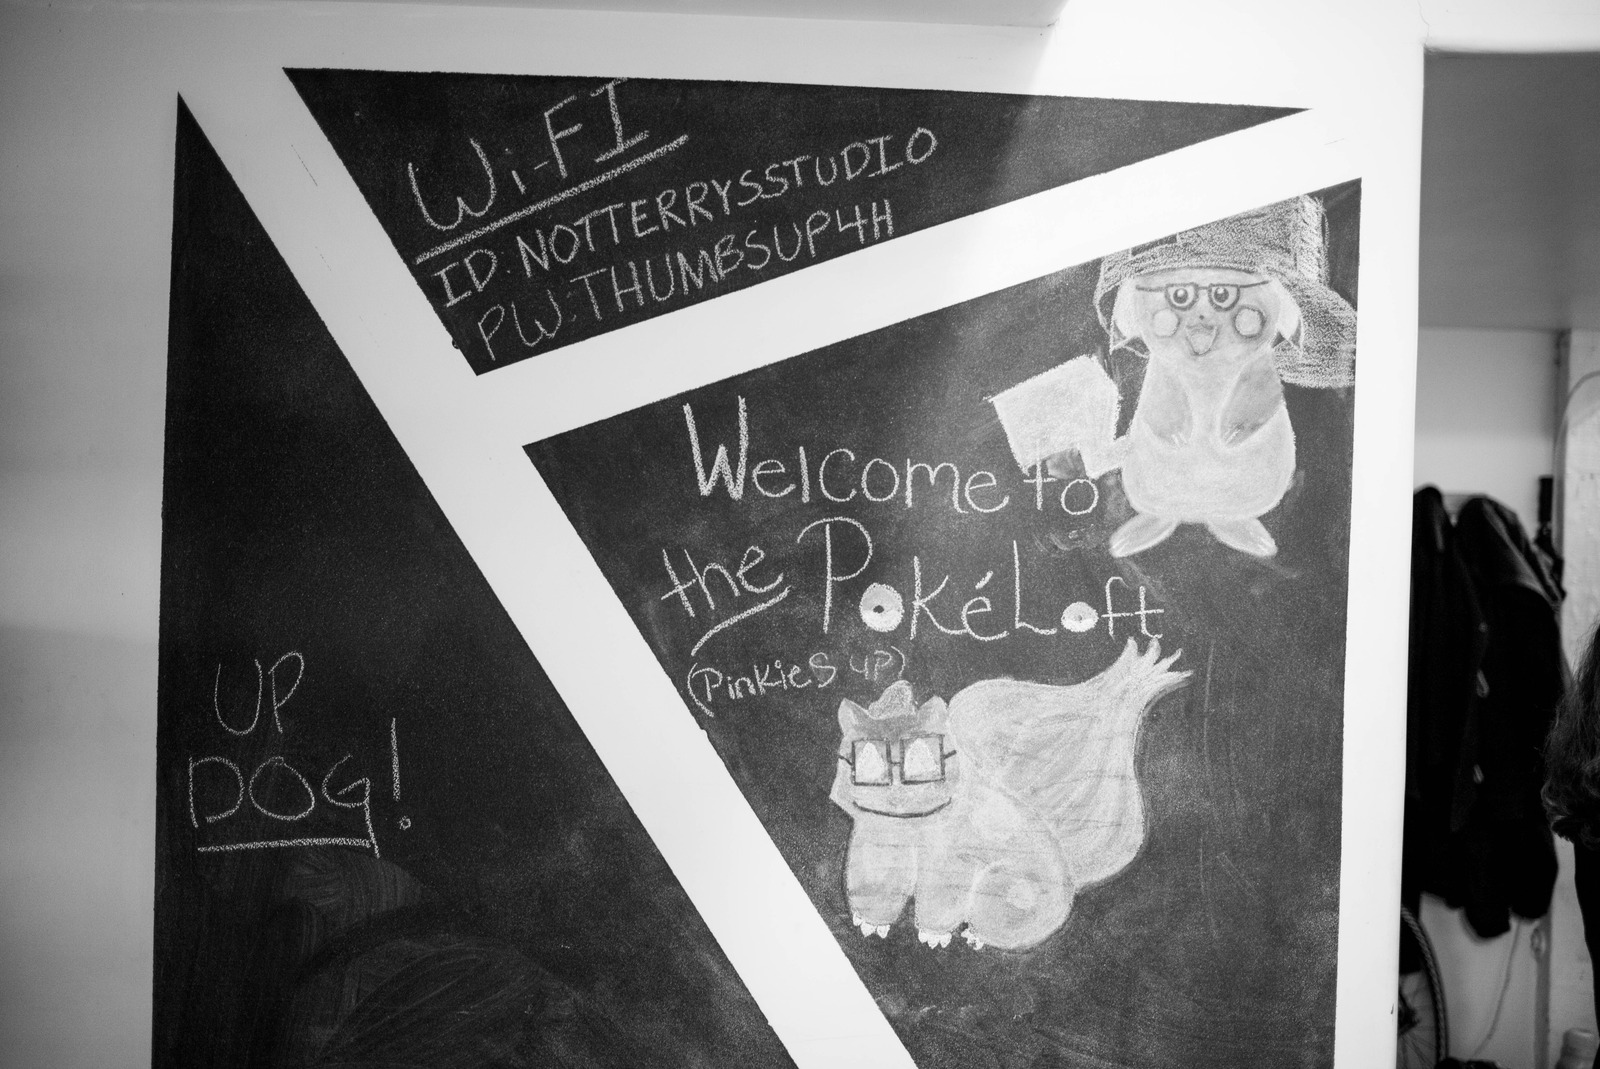 Wi-FI
ID: NOTTERRYSSTUDIO
PW: THUMBSUP4H
Welcome to
the PokéLoft
(Pinkies up)
UP
DOG!